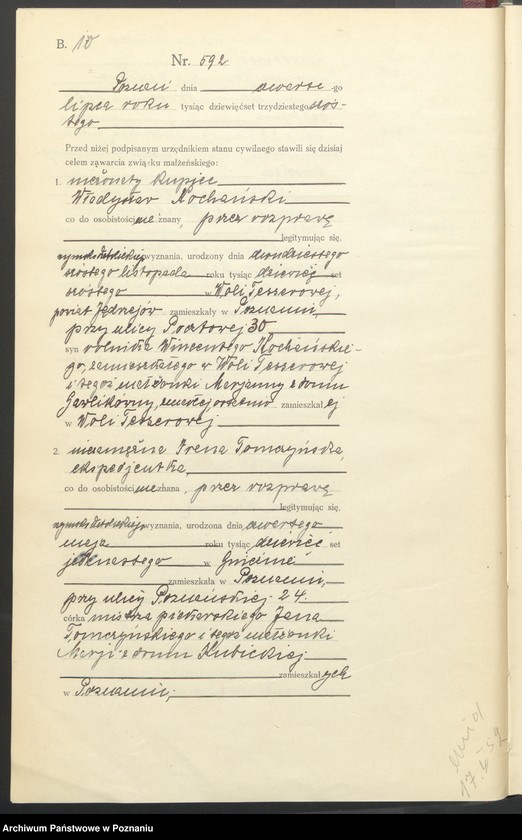 B. 10
Nr. 592
Poznań dnia czwarte go
lipca roku tysiąc dziewięćset trzydziestego szós-
tego
Przed niżej podpisanym urzędnikiem stanu cywilnego stawili się dzisiaj
celem zawarcia związku małżeńskiego:
1. nieżonaty kupiec
Władysław Kochański
co do osobistości nie znany, przez rozprawę
legitymując się,
rzymskokatolickiego wyznania, urodzony dnia dwudziestego
szóstego listopada roku tysiąc dziewięć set
szóstego w Woli Tesserowej,
powiat Jędrzejów zamieszkały w Poznaniu,
przy ulicy Pocztowej 30
syn rolnika Wincentego Kochańskie-
go, zamieszkałego w Woli Tesserowej
i tegoż małżonki Marjanny z domu
Gawlikówny, zamieszkałej
w Woli Tesserowej
2. niezamężna Irena Tomczyńska,
ekspedjentka,
co do osobistości nie znana, przez rozprawę
legitymując się,
rzymskokatolickiego wyznania, urodzona dnia czwartego
maja roku tysiąc dziewięć set
jedenastego w Gnieźnie
zamieszkała w Poznaniu,
przy ulicy Poznańskiej 24.
córka mistrza piekarskiego Jana
Tomczyńskiego i tegoż małżonki
Marji z domu Kubickiej
zamieszkałych
w Poznaniu,
17.6.52
Archiwum Państwowe w Poznaniu